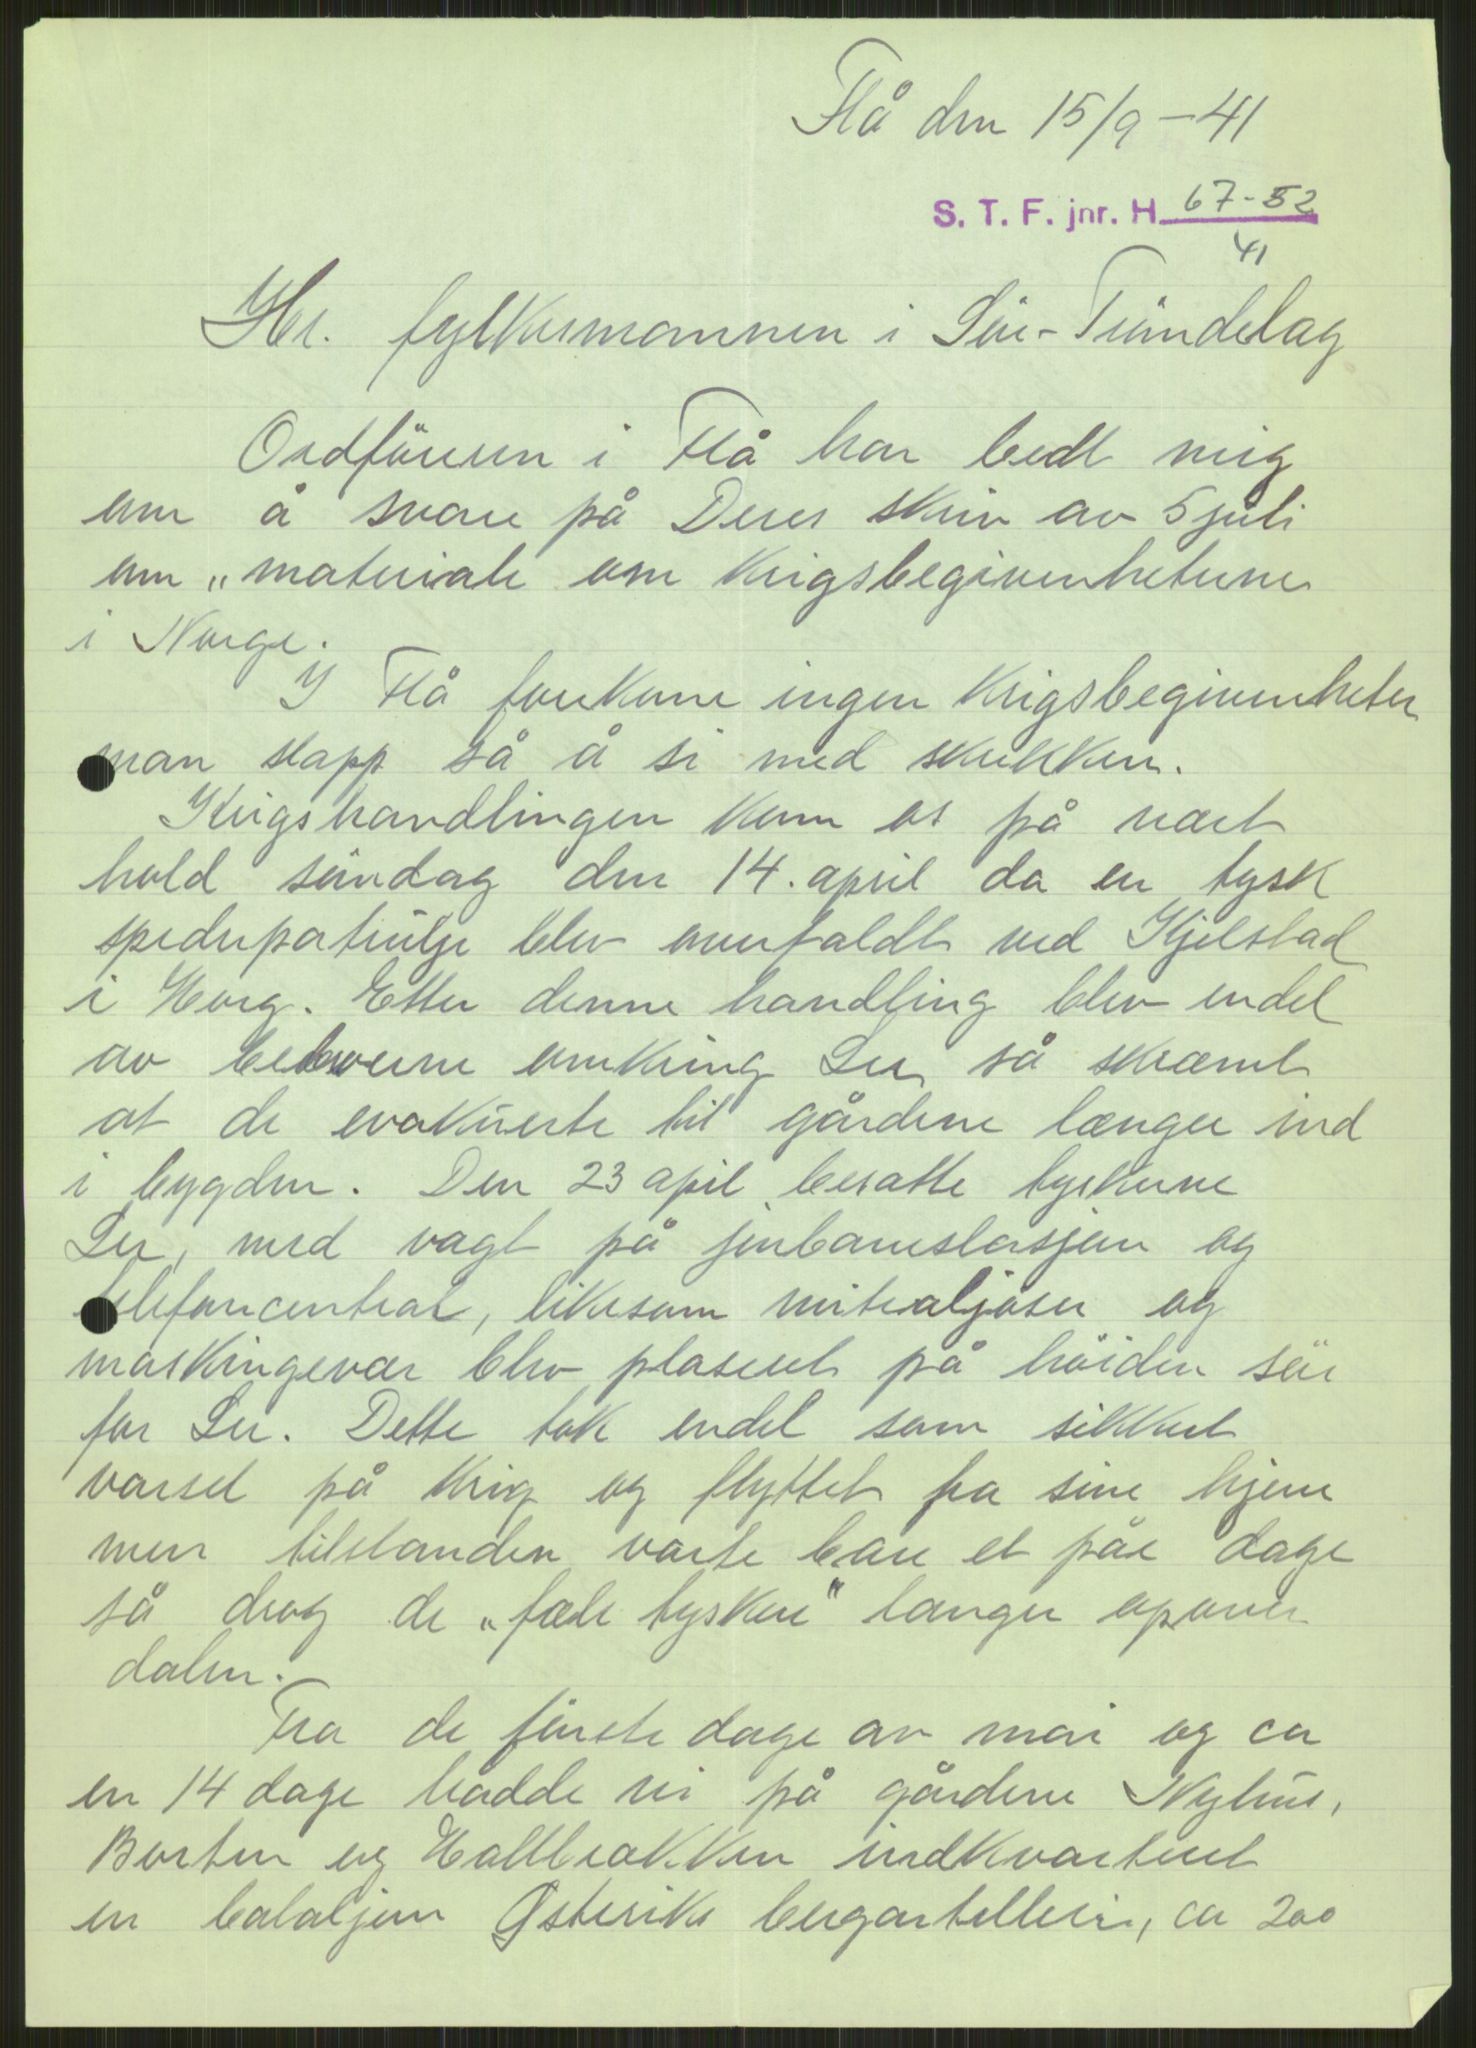 Flå den 15/9 - 41
S. T. F. jnr. H 67-52
41
Hr. fylkesmannen i Sör-Tröndelag
Ordföreren i Flå har bedt mig
om å svare på Deres skriv av 5 juli
om „materiale om krigsbegivenhetene
i Norge.
I Flå forekom ingen krigsbegivenheter
man slapp så å si med skrekken.
Krigshandlingen kom os på nært
hold söndag den 14. april da en tysk
speiderpatrulje blev overfaldt ved Kjelstad
i Horg. Etter denne handling blev endel
av beboerne omkring Ler så skræmt
at de evakuerte til gårdene længer ind
i bygden. Den 23 april besatte tyskerne
Ler, med vagt på jernbanestasjon og
telefoncentral, likesom mitraljöser og
maskingevær blev plasert på höiden sör
for Ler. Dette tok endel som sikkert
varsel på krig og flyttet fra sine hjem
men tilstanden varte bare et par dage
så drog de „fæle tyskere" længer opover
dalen.
Fra de förste dage av mai og ca
en 14 dage hadde vi på gårdene Nyhus,
Borten og Haltbrakken indkvartert
en bataljon Østeriks bergartelleri, ca 200